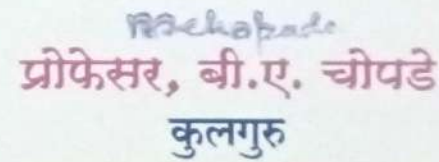 प्रोफेसर, बी.ए. चोपडे
कुलगुरु